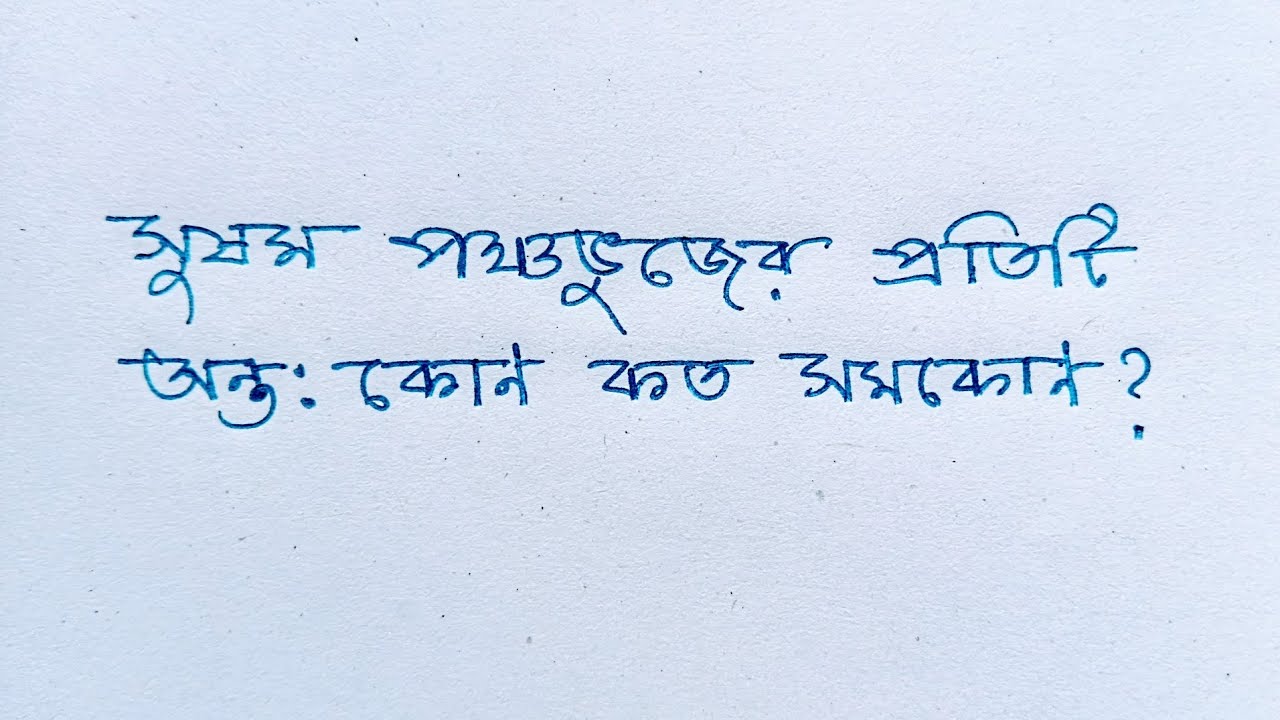 সুষম পঞ্চভুজের প্রতিটি
অন্ত: কোন কত সমকোন ?